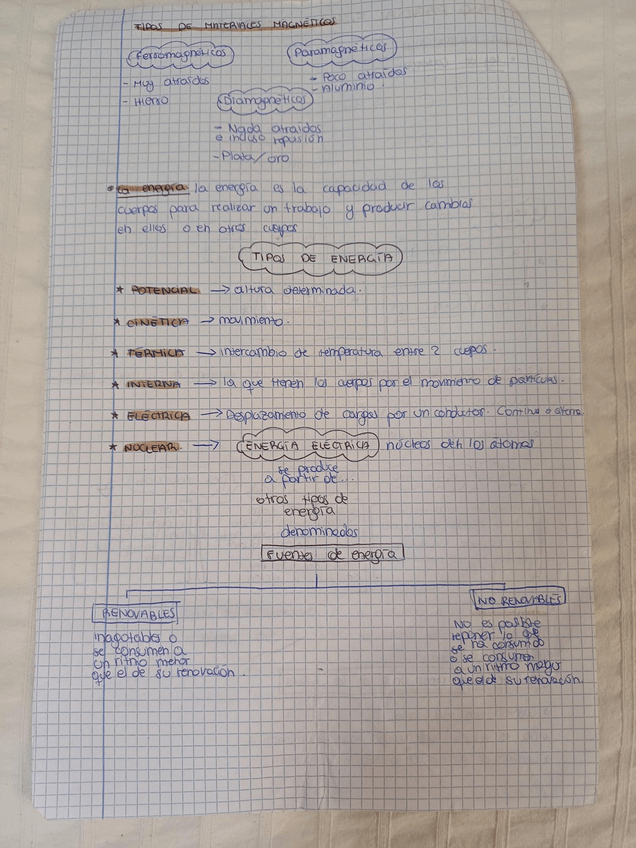 TIPOS DE MATERIALES MAGNÉTICOS
Ferromagnéticos
Paramagnéticos
- Muy atraídos
- Hierro
- Poco atraídos
- Aluminio.
Diamagnéticos
- Nada atraídos
e incluso repusión
- Plata/oro
La energía la energía es la capacidad de los
cuerpos para realizar un trabajo y producir cambias
en ellos o en otros cuepos
TIPOS DE ENERGÍA
* POTENCIAL → altura determinada.
* CINÉTICA → movimiento.
* TÉRMICA → Intercambio de temperatura entre 2 cuepos.
* INTERNA → la que tienen los cuerpos por el movimiento de partículas.
* ELÉCTRICA → Desplazamento de cargas por un conductor. Continua o alterna.
* NUCLEAR → ENERGÍA ELÉCTRICA núcleos deh los atomos
se produce
a partir de...
otros tipos de
energía
denominados
Fuentes de energía
RENOVABLES
NO RENOVABLES
inagotables o
se consumen a
un ritmo menor
que el de su renovación.
No es posible
reponer lo que
se ha consumido
o se consumen
a un ritmo mayor
que el de su renovación